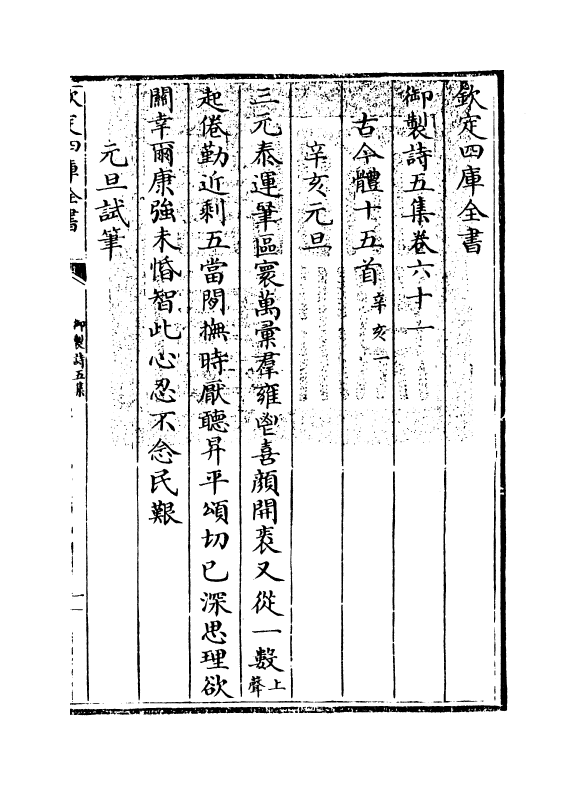 欽定四庫全書
御製詩五集卷六十一
古今體十五首辛亥一
辛亥元旦
三元泰運肇區寰萬彙羣雍鬯喜顔開袠又從一數上聲
起倦勤近剩五當閒撫時厭聽昇平頌切已深思理欲
關幸爾康強未惛智此心忍不念民艱
元旦試筆
欽定四庫全書
御製詩五集